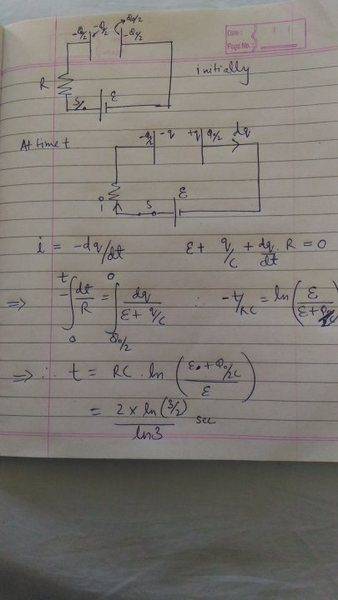 Date :
Page No.
-Q₀/2 -Q₀/2 Q₀/2 -Q₀/2
R
S/o ε
initially
At time t
-Q₀/2 -q +q Q₀/2 dq
i S ε
i = -dq/dt ε + q/C + dq/dt R = 0
⇒ -∫₀ᵗ dt/R = ∫_{Q₀/2}^{0} dq/(ε + q/C) ∴ -t/RC = ln(ε/(ε + Q₀/2C))
⇒ ∴ t = RC · ln((ε + Q₀/2C)/ε)
= 2 × ln(3/2)/ln3 sec